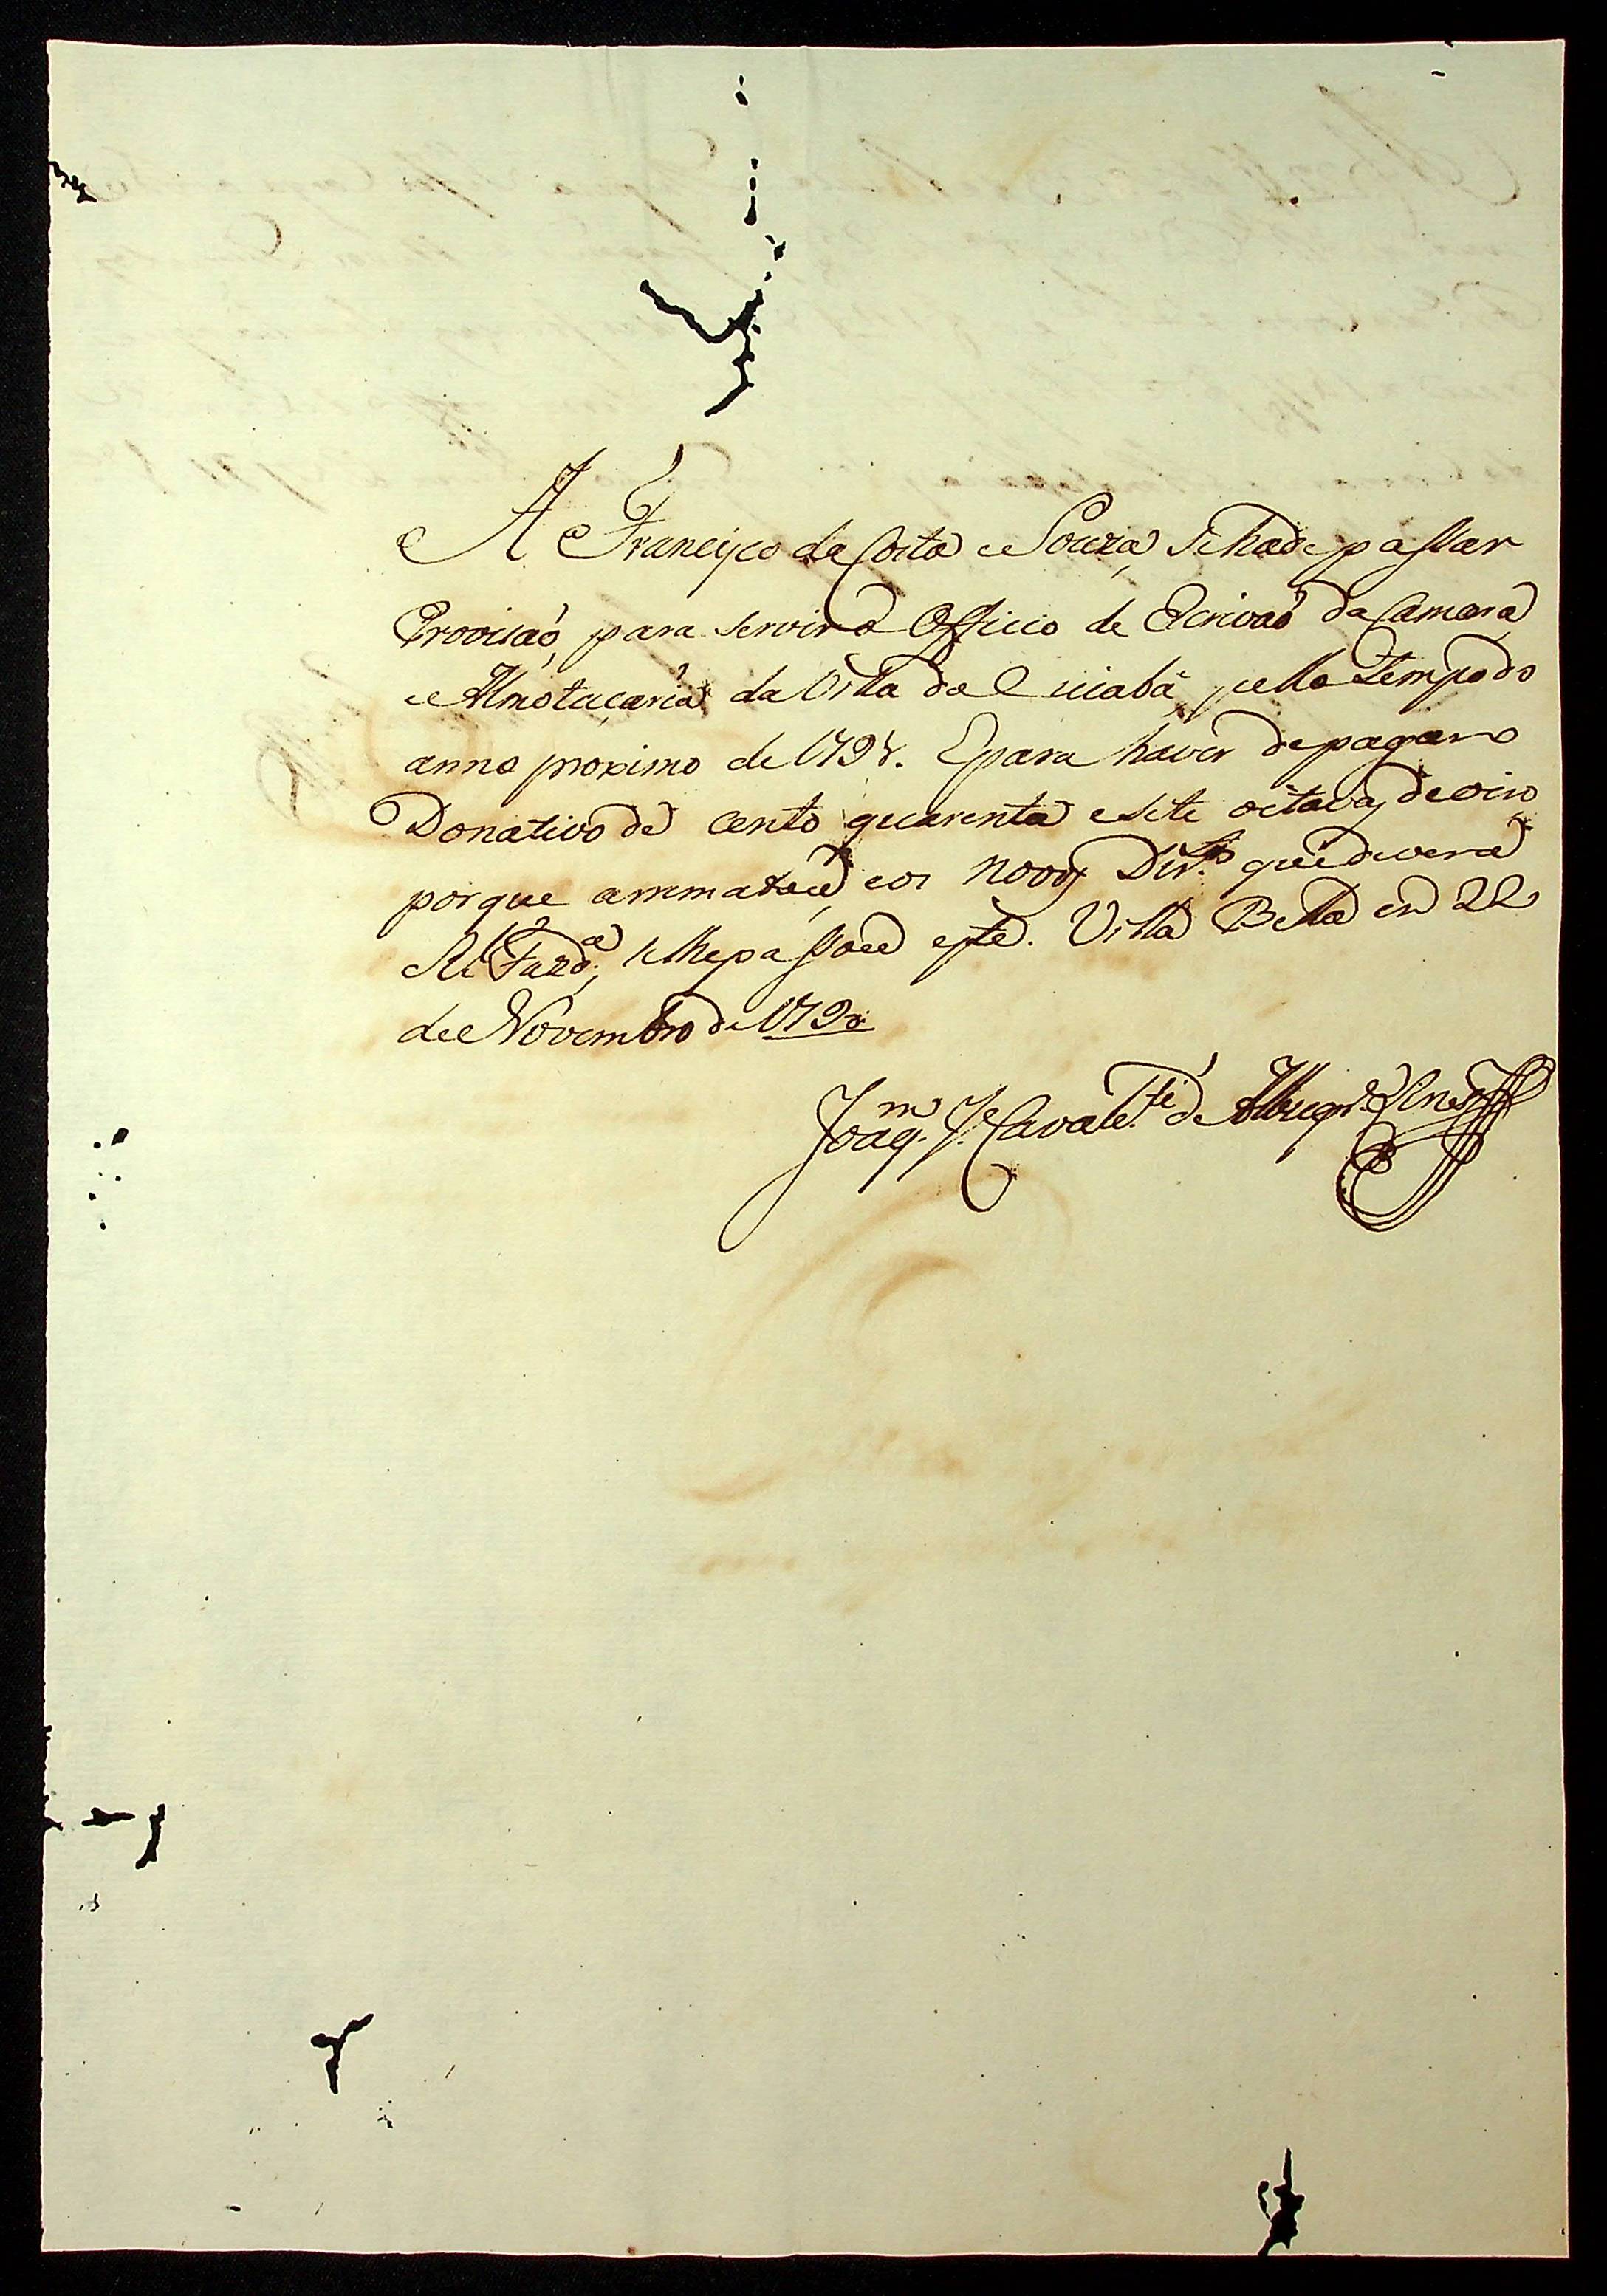 A Francisco da Costa e Souza, se hade passar
Provisaõ, para servir o Officio de Escrivaõ da Camara
e Almotaçaria da Villa do Cuiabá, pello tempo do
anno proximo de 179. E para haver de pagar o
Donativo de cento quarenta e sete oitavas de oiro
porque arrematou, e os novos Dir.tos que dever a
R.l Fazd.a, se lhe passou este. Villa Bella em 22
de Novembro de 179
Joaq.m J.e Cavalc.te de Albuqr.e Lins